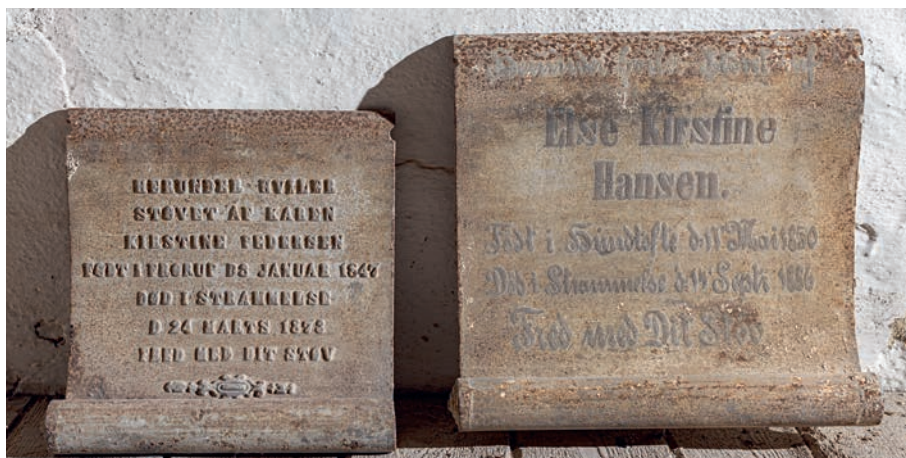 HERUNDER HVILER
STØVET AF KAREN
KIRSTINE PEDERSEN
FØDT I FRØRUP D 3 JANUAR 1847
DØD I STRAMMELSE
D 24 MARTS 1878
FRED MED DIT STØV
Herunder hviler Støvet af
Else Kirstine
Hansen.
Født i Hundtofte d: 11te Mai 1850
Død i Strammelse d: 14 Septr 1886
Fred med Dit Støv